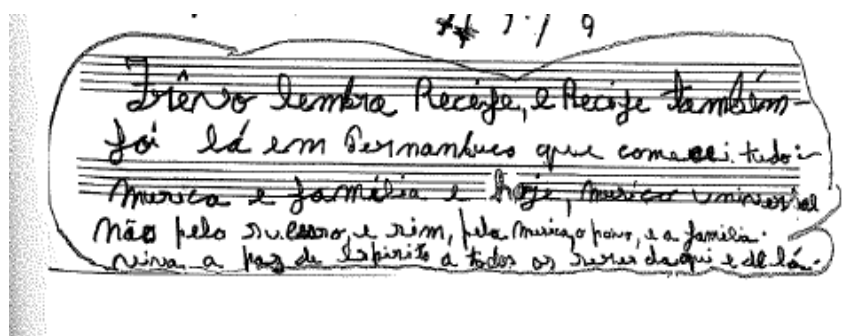 Frêvo lembra Recife, e Recife também-
foi lá em Pernambuco que comecei tudo:-
musica e família e hoje, musica universal
não pelo sucesso, e sim, pela musica, o povo, e a família.
viva a paz de Espirito a todos os seres daqui e de lá.